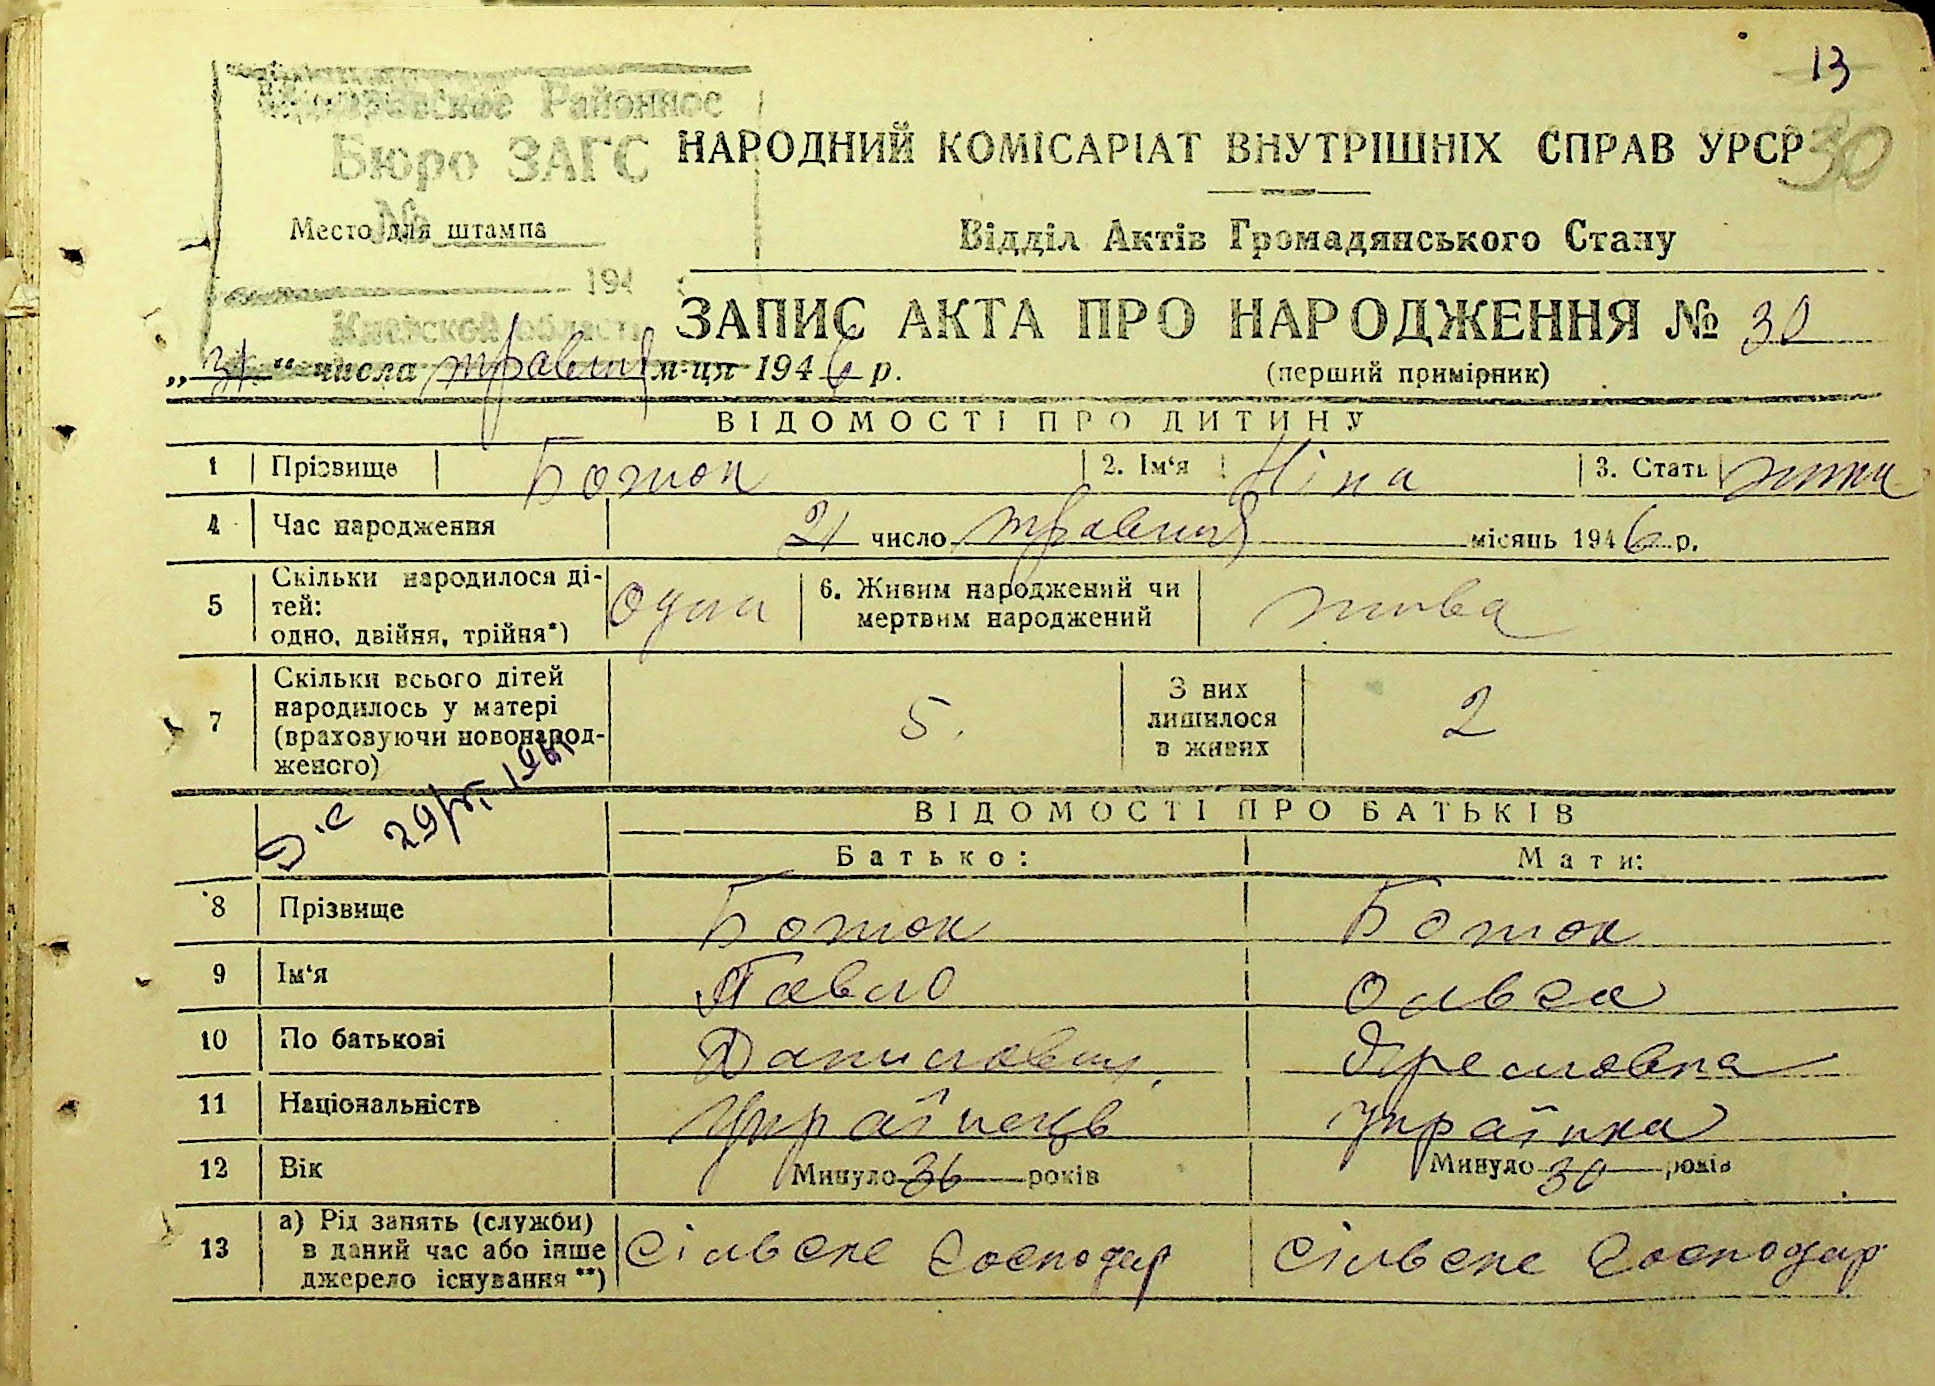 13
Районное
Бюро ЗАГС
30
НАРОДНИЙ КОМІСАРІАТ ВНУТРІШНІХ СПРАВ УРСР
№
Место для штампа
Відділ Актів Громадянського Стану
194
Киевской области
ЗАПИС АКТА ПРО НАРОДЖЕННЯ № 30
„31“ числа травня м-ця 1946 р.
(перший примірник)
ВІДОМОСТІ ПРО ДИТИНУ
1 Прізвище Божок 2. Ім‘я Ніна 3. Стать жіноч
4 Час народження 21 число травня місяць 1946 р.
5 Скільки народилося ді-
тей:
одно, двійня, трійня*) одна
6. Живим народжений чи
мертвим народжений жива
7 Скільки всього дітей
народилось у матері
(враховуючи новонарод-
женого) 5.
З них
лишилося
в живих 2
ВІДОМОСТІ ПРО БАТЬКІВ
Батько: Мати:
8 Прізвище Божок Божок
9 Ім‘я Павло Ольга
10 По батькові Данилович
11 Національність Українець Українка
12 Вік Минуло 36 років Минуло 30 років
13 а) Рід занять (служби)
в даний час або інше
джерело існування**) сільске господар сільске господар